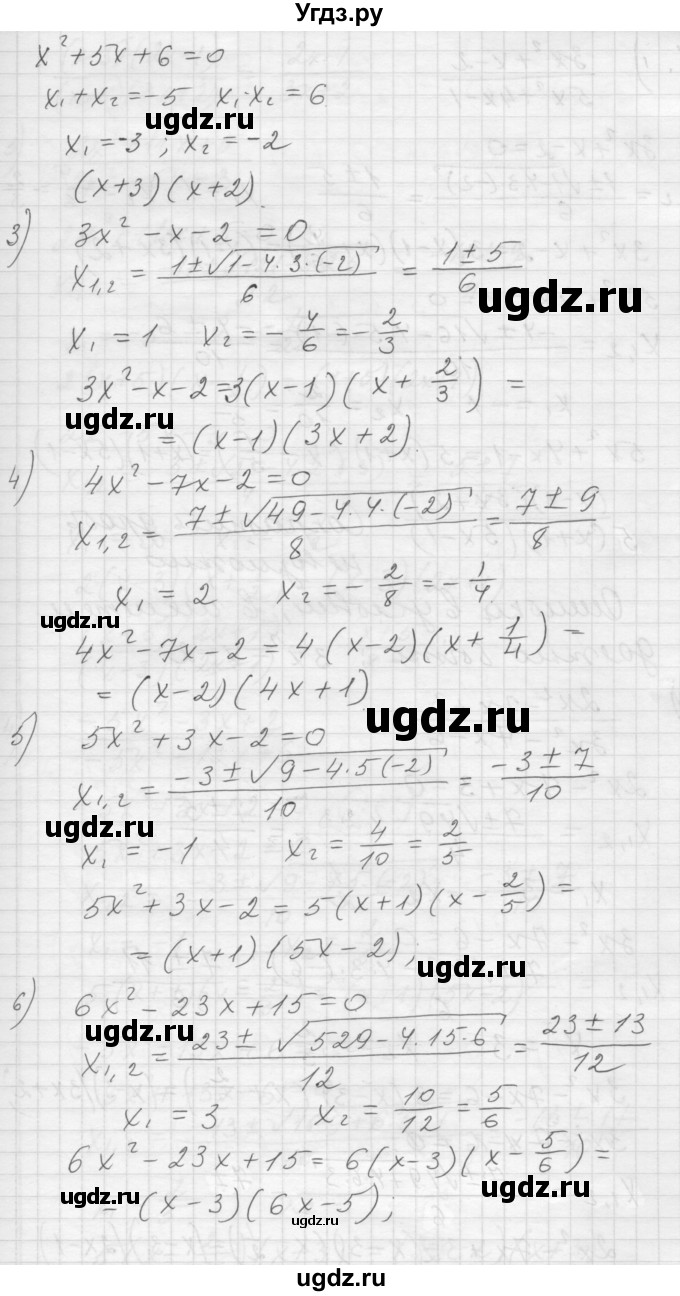 Угдз.ру
x² + 5x + 6 = 0
x₁ + x₂ = -5   x₁·x₂ = 6
ugdz.ru
x₁ = -3 ; x₂ = -2
(x+3)(x+2).
3) 3x² - x - 2 = 0
x₁,₂ = (1 ± √(1 - 4·3·(-2)))/6 = (1 ± 5)/6
ugdz.ru
x₁ = 1   x₂ = -4/6 = -2/3
3x² - x - 2 = 3(x-1)(x + 2/3) =
ugdz.ru
= (x-1)(3x+2).
4) 4x² - 7x - 2 = 0
x₁,₂ = (7 ± √(49 - 4·4·(-2)))/8 = (7 ± 9)/8
x₁ = 2   x₂ = -2/8 = -1/4
ugdz.ru
4x² - 7x - 2 = 4(x-2)(x + 1/4) =
= (x-2)(4x+1)
ugdz.ru
5) 5x² + 3x - 2 = 0
x₁,₂ = (-3 ± √(9 - 4·5(-2)))/10 = (-3 ± 7)/10
ugdz.ru
x₁ = -1   x₂ = 4/10 = 2/5
5x² + 3x - 2 = 5(x+1)(x - 2/5) =
= (x+1)(5x-2);
ugdz.ru
6) 6x² - 23x + 15 = 0
ugdz.ru
x₁,₂ = (23 ± √(529 - 4·15·6))/12 = (23 ± 13)/12
x₁ = 3   x₂ = 10/12 = 5/6
6x² - 23x + 15 = 6(x-3)(x - 5/6) =
ugdz.ru
= (x-3)(6x-5);
ugdz.ru
ugdz.ru